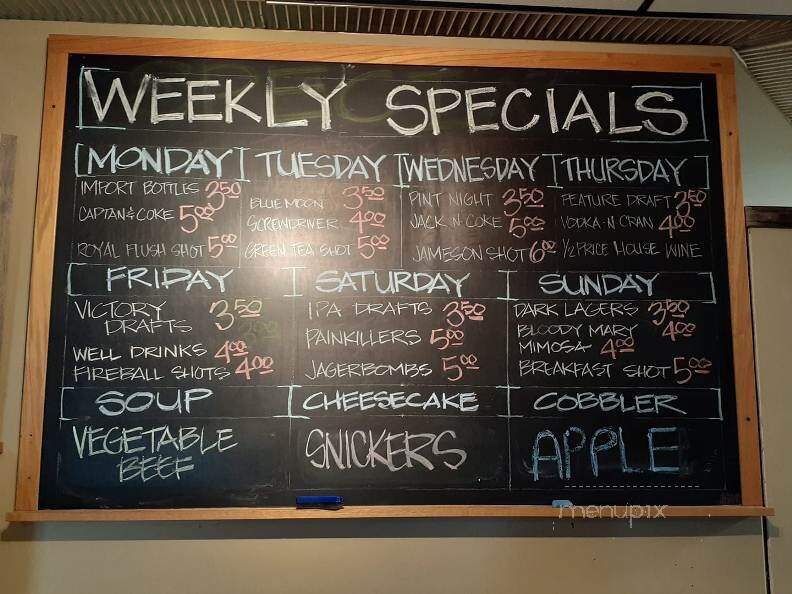 WEEKLY SPECIALS
MONDAY
IMPORT BOTTLES 3.50
CAPTAIN & COKE 5.00
ROYAL FLUSH SHOT 5.00
TUESDAY
BLUE MOON 3.50
SCREWDRIVER 4.00
GREEN TEA SHOT 5.00
WEDNESDAY
PINT NIGHT 3.50
JACK N COKE 5.00
JAMESON SHOT 6.00
THURSDAY
FEATURE DRAFT 3.50
VODKA N CRAN 4.00
1/2 PRICE HOUSE WINE
FRIDAY
VICTORY
DRAFTS 3.50
WELL DRINKS 4.00
FIREBALL SHOTS 4.00
SATURDAY
IPA DRAFTS 3.50
PAINKILLERS 5.00
JAGERBOMBS 5.00
SUNDAY
DARK LAGERS 3.50
BLOODY MARY 4.00
MIMOSA 4.00
BREAKFAST SHOT 5.00
SOUP
VEGETABLE
BEEF
CHEESECAKE
SNICKERS
COBBLER
APPLE
menupix